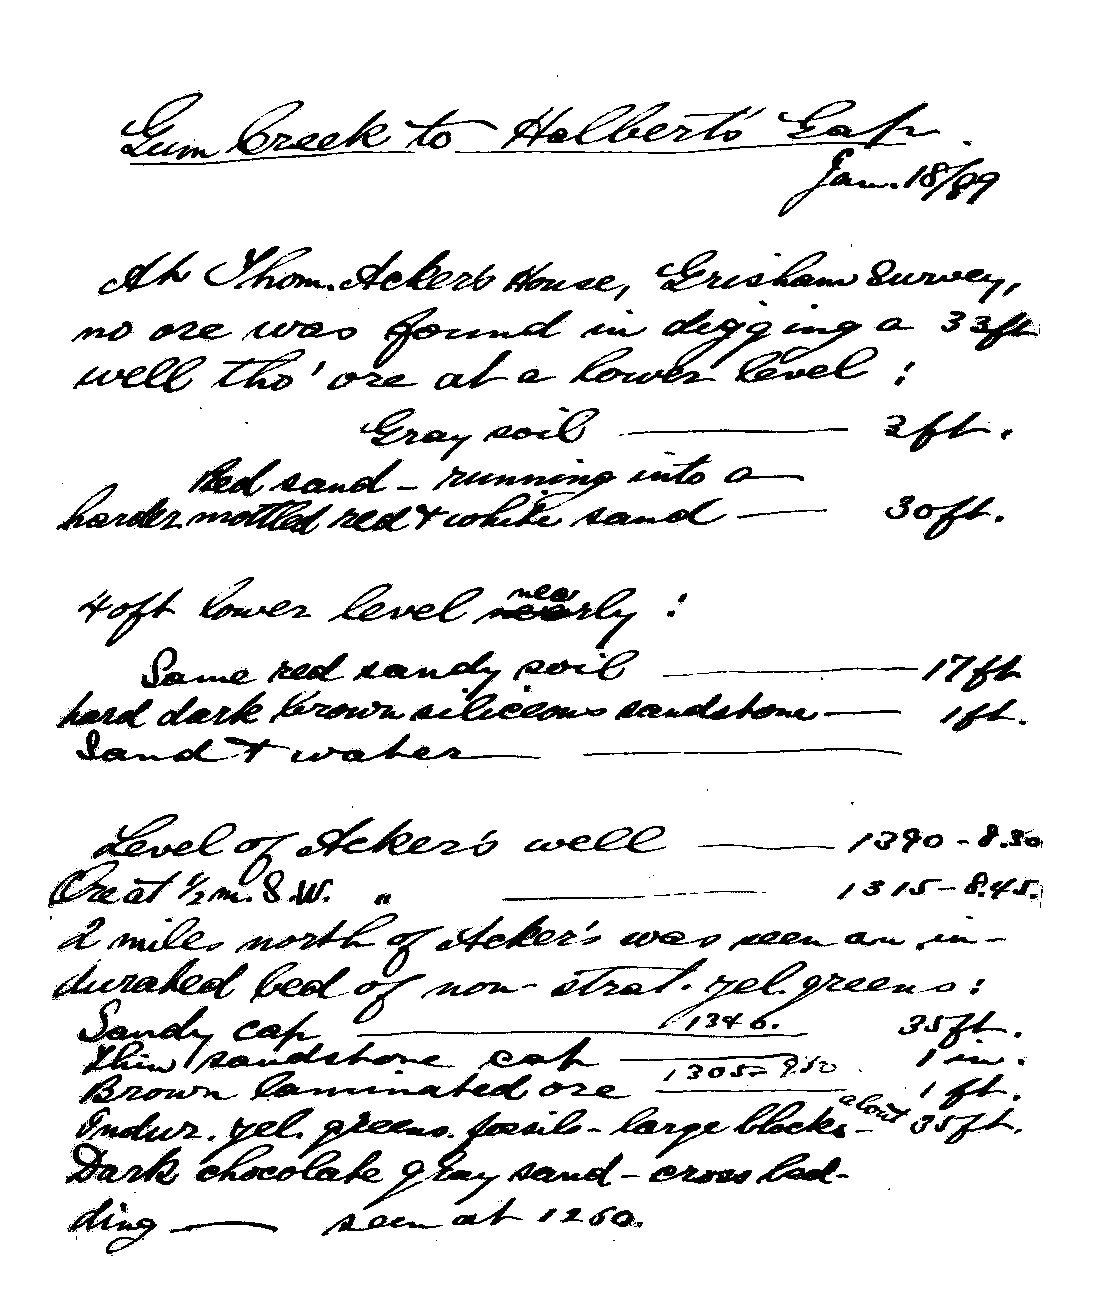 Gum Creek to Halbert's Gap.
Jan. 18/89
At Thom. Acker's House, Grisham Survey,
no ore was found in digging a 33ft
well tho' ore at a lower level :
Gray soil — 3ft.
Red sand - running into a
harder mottled red & white sand — 30ft.
40ft lower level near nearly :
Same red sandy soil — 17ft
hard dark brown siliceous sandstone — 1ft.
Sand & water — —
Level of Acker's well — 1390 - 8.30
Ore at 1/2 m. S.W. " — 1315 - 8.45.
2 miles north of Acker's was seen an in-
durated bed of non-strat. yel. greens :
Sandy cap — 1340. 35ft.
Thin sandstone cap — 1 in.
Brown laminated ore 1305 - 9.50 1 ft.
Indur. yel. greens. fossils - large blocks - about 35ft.
Dark chocolate gray sand - cross bed-
ding — seen at 1260.